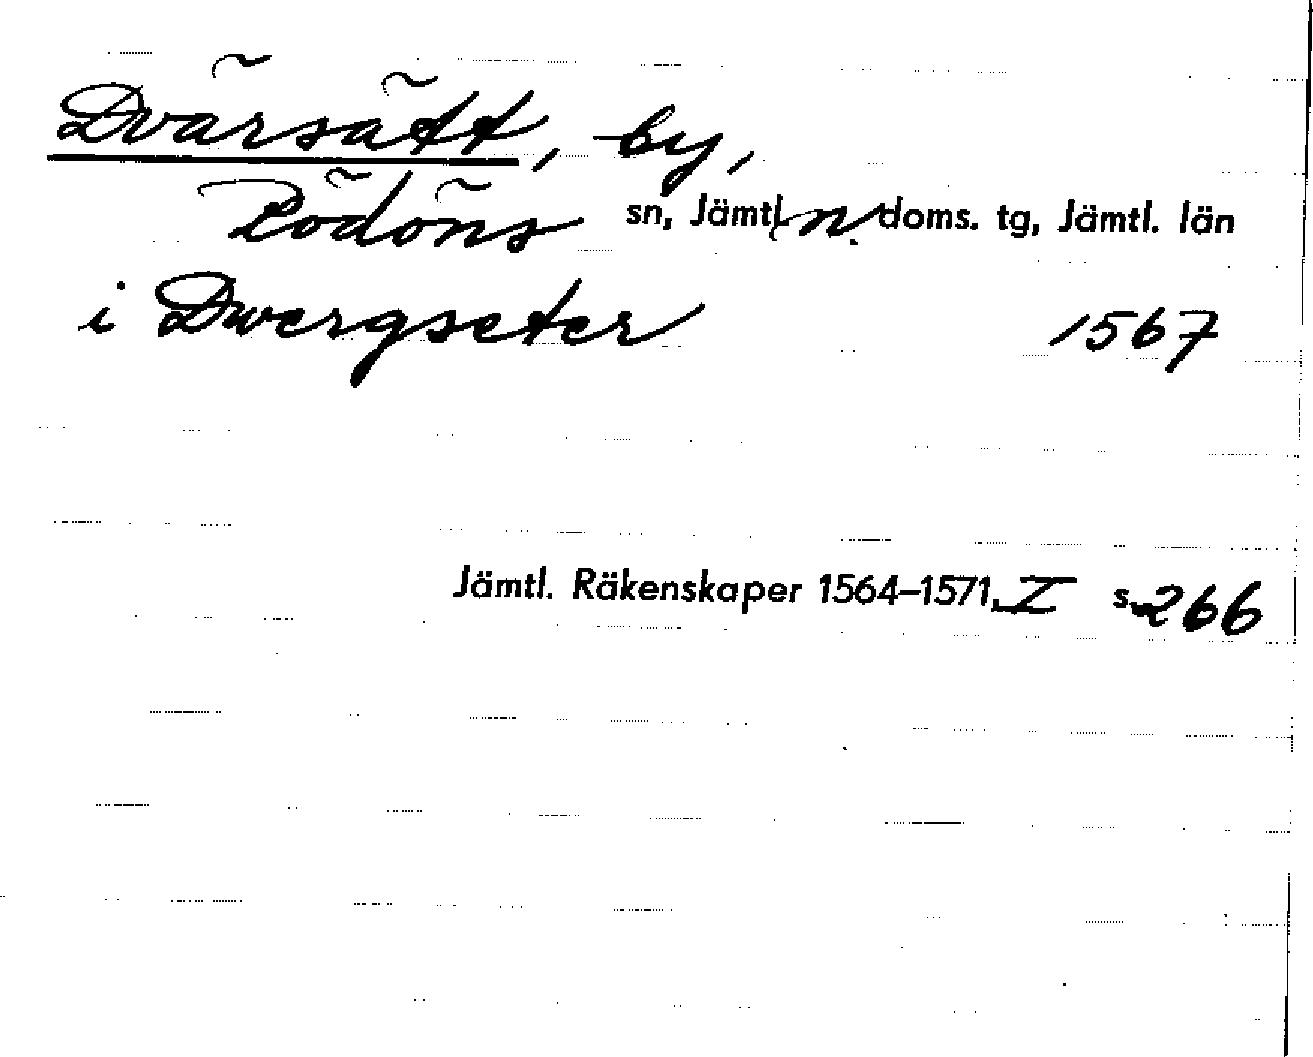 Dvärsätt, by,
Rödöns sn, Jämtl. n. doms. tg, Jämtl. län
i Dwergseter 1567
Jämtl. Räkenskaper 1564–1571, I s. 266